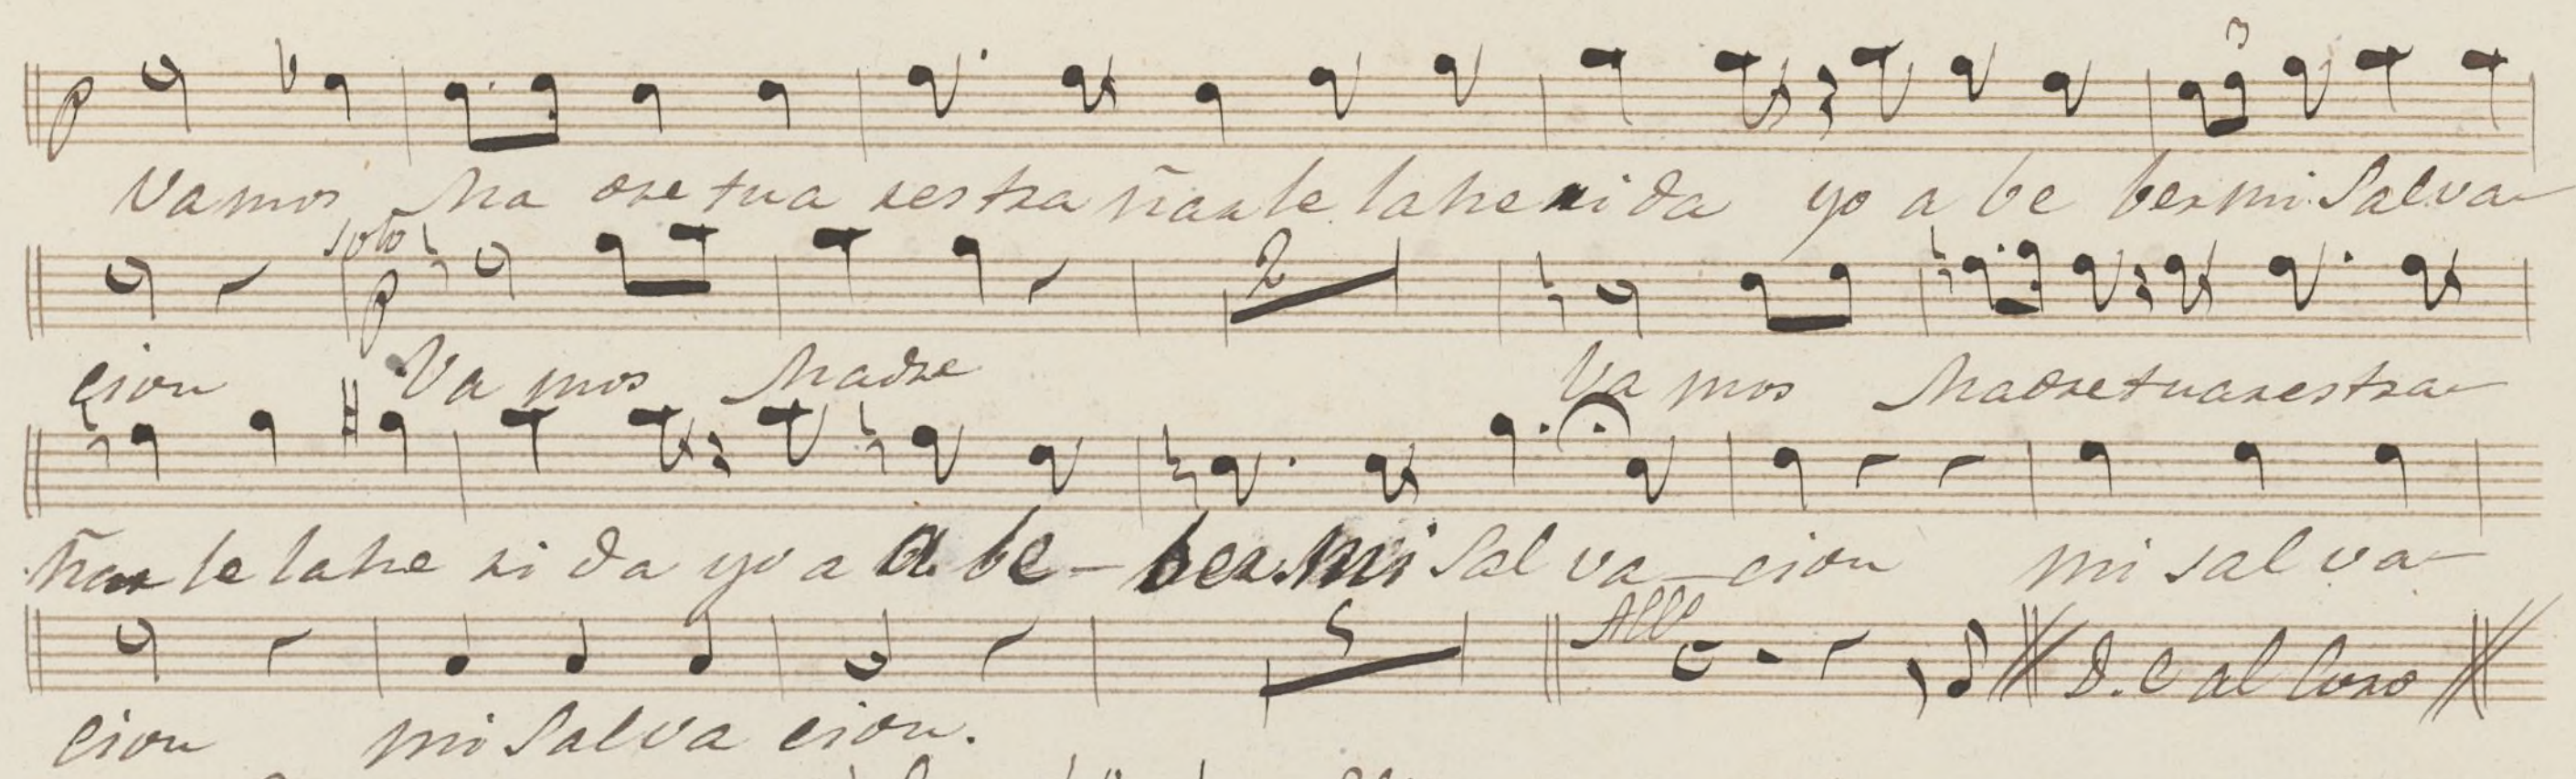 p
3
Vamos Ma dre tua restra ñarle laherida yo a be bermi Salva-
solo
p
2
cion Va mos Madre Va mos Madretuarestra-
ñar le lahe ri da yo a a be- ber mi Sal va-cion mi sal va-
5
Allº C
D.C al Coro
cion mi Salva cion.